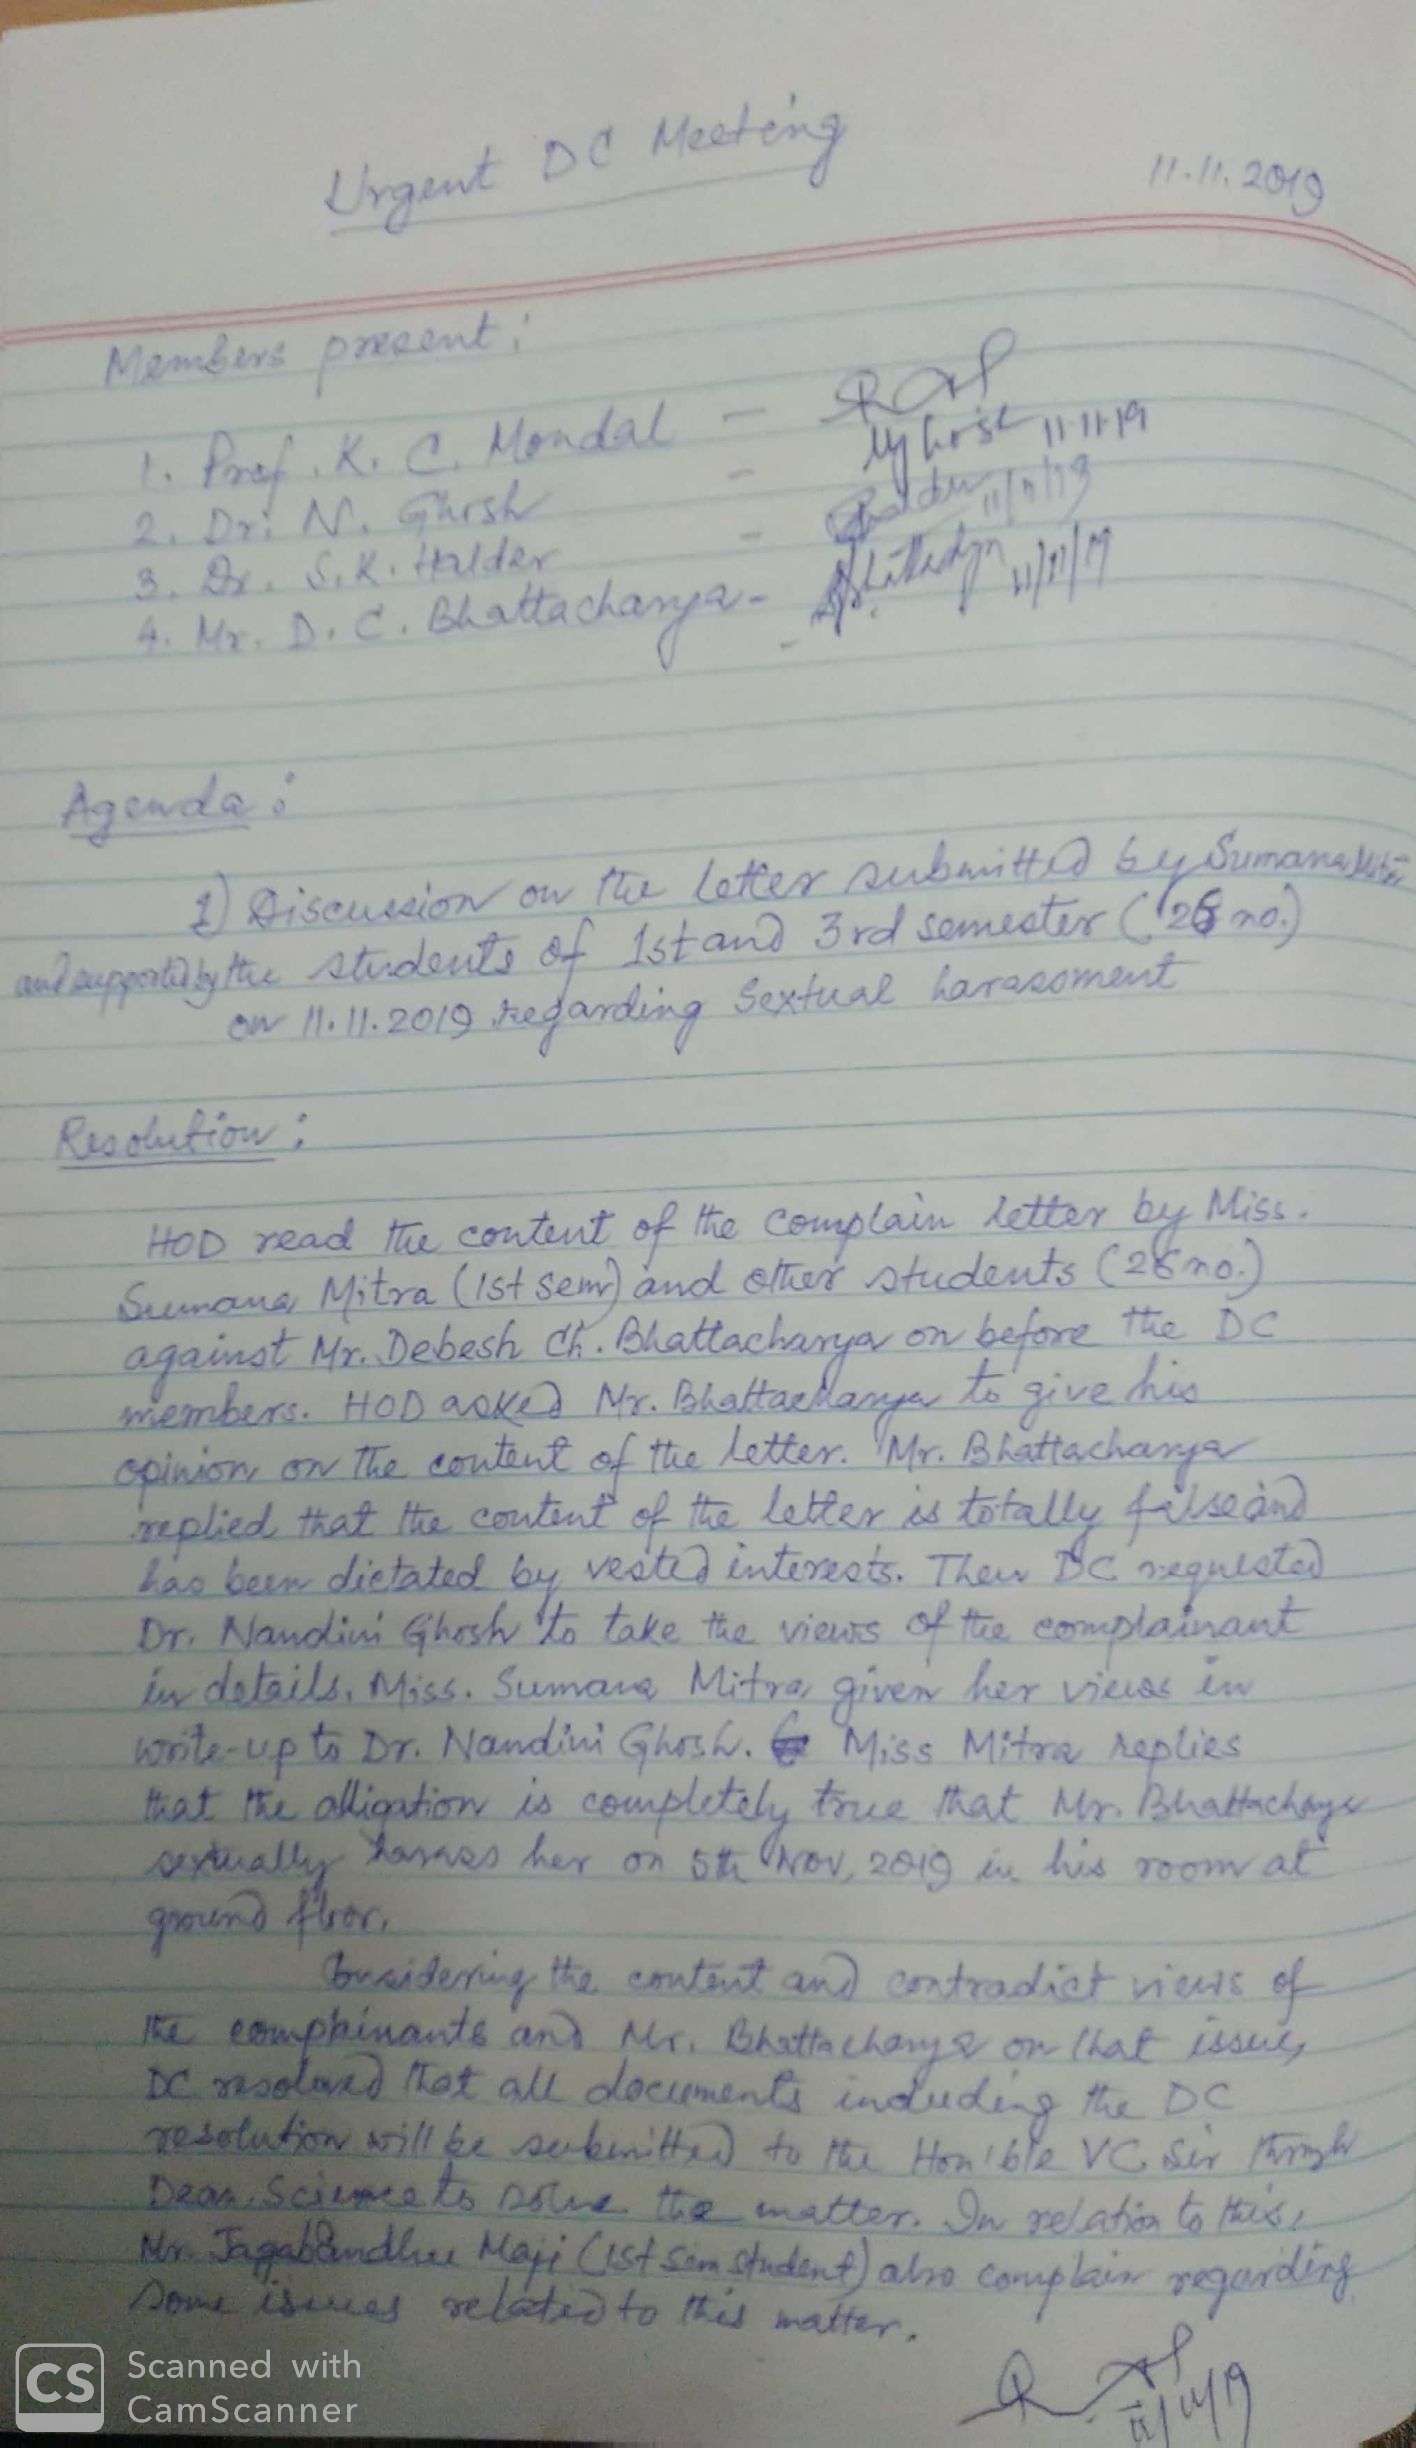 Urgent DC Meeting
11.11.2019
Members present:
1. Prof. K. C. Mondal -
2. Dr. N. Ghosh - Ghosh 11.11.19
3. Dr. S.K. Halder - Halder 11/11/19
4. Mr. D. C. Bhattacharya - 11/11/19
Agenda:
1) Discussion on the letter submitted by Sumana Mitra
and supported by the students of 1st and 3rd semester (26 no.)
on 11.11.2019 regarding Sextual harassment
Resolution:
HOD read the content of the complain letter by Miss.
Sumana Mitra (1st Sem) and other students (26 no.)
against Mr. Debesh Ch. Bhattacharya on before the DC
members. HOD asked Mr. Bhattacharya to give his
opinion on the content of the letter. Mr. Bhattacharya
replied that the content of the letter is totally false and
has been dictated by vested interests. Then DC requested
Dr. Nandini Ghosh to take the views of the complainant
in details. Miss. Sumana Mitra given her views in
write-up to Dr. Nandini Ghosh. Miss Mitra replies
that the alligation is completely true that Mr. Bhattacharya
sextually harass her on 5th Nov, 2019 in his room at
ground floor.
Considering the content and contradict views of
the complainants and Mr. Bhattacharya on that issue,
DC resolved that all documents including the DC
resolution will be submitted to the Hon'ble VC Sir through
Dean. Science to solve the matter. In relation to this,
Mr. Jagabandhu Maji (1st Sem student) also complain regarding
some issues related to this matter.
11/11/19
CS Scanned with
CamScanner